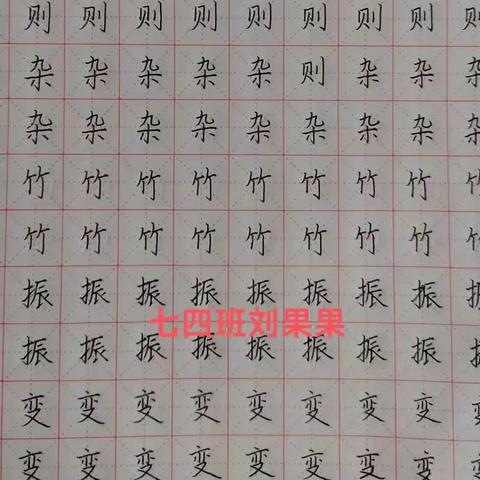 则则则则则则则则
杂杂杂杂杂则杂杂
杂杂杂杂杂杂杂杂
竹竹竹竹竹竹竹竹
竹竹竹竹竹竹竹竹
振振振振振振振振
七四班刘果果
振振振振振振振振
变变变变变变变变
变变变变变变变变